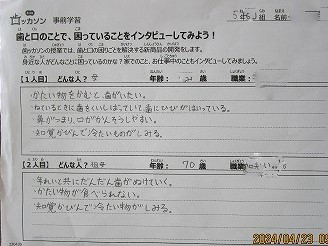 ロッカソン 事前学習
歯と口のことで、困っていることをインタビューしてみよう！
歯ッカソンの授業では、歯と口の困りごとを解決する新商品の開発をします。
身近な人がどんなことに困っているのかな？家でのこと、お仕事中のこともインタビューしてみよう！
【1人目】どんな人？ 年齢： 歳 職業
・かたい物をかむと歯がいたい。
・ねているときに歯をくいしばっていて歯にひびがはいっている。
・鼻がつまり、口がかんそうしやすい。
・知覚かびんで冷たいものがしみる。
【2人目】どんな人？祖母 年齢： 70 歳 職業
・年れいと共にだんだん歯がぬけていく。
・かたい物が食べられない。
・知覚かびんで冷たい物がしみる。
2024/04/23